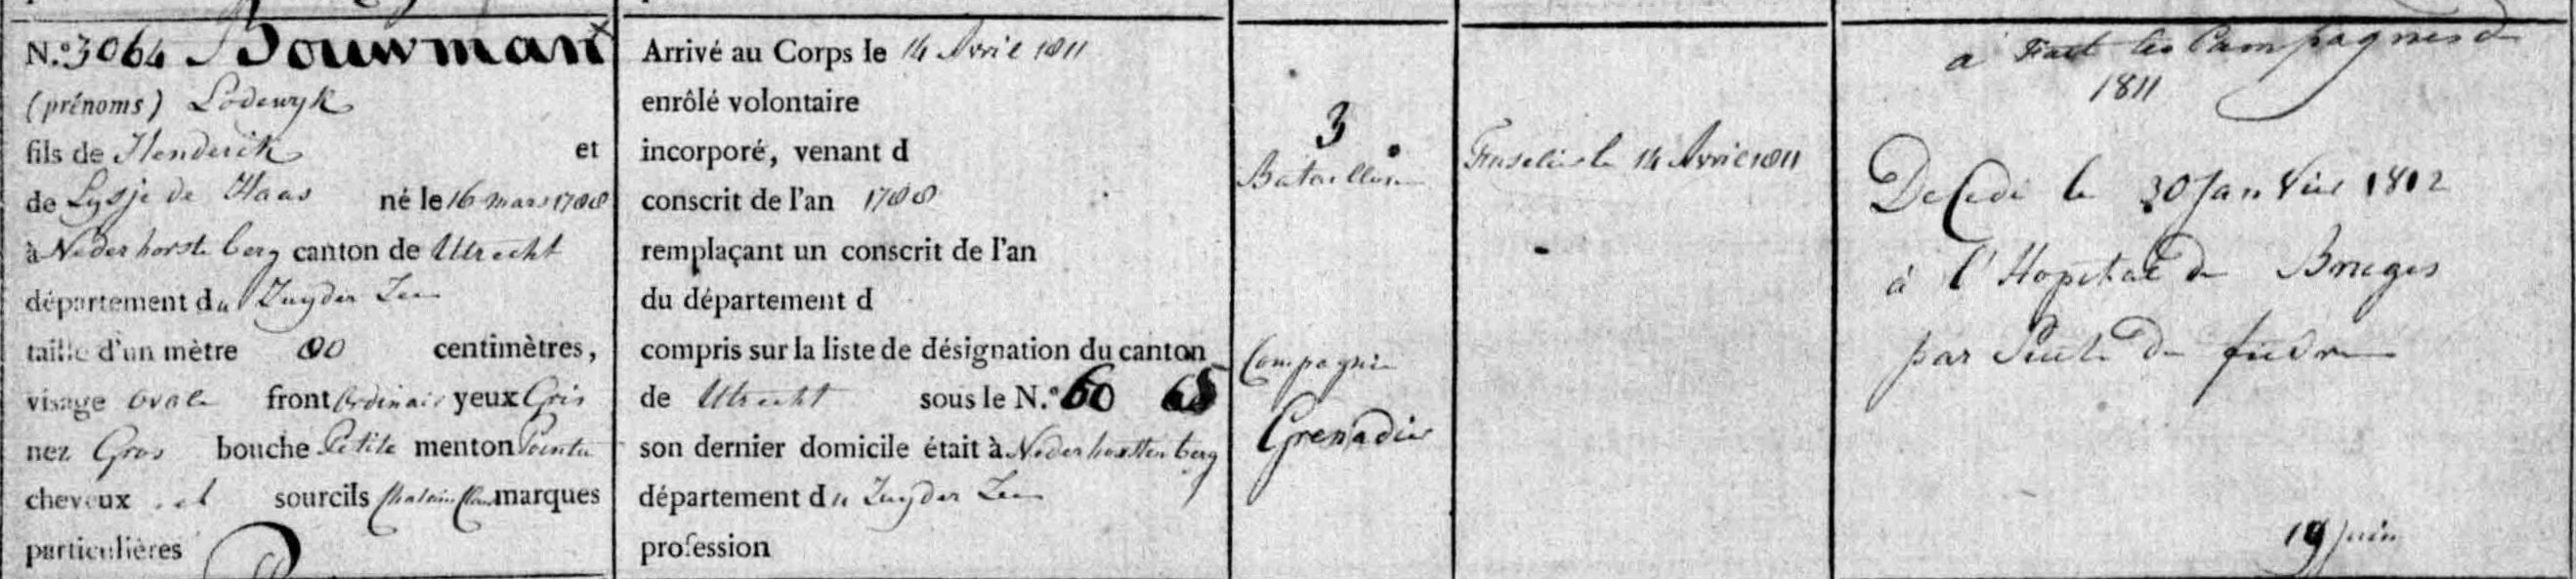 N.º 3064 Bouwman
(prénoms) Lodewyk
fils de Henderik et
de Lysje de Haas né le 16 mars 1788
à Nederhorst berg canton de Utrecht
département du Zuyder Zee
taille d'un mètre centimètres,
visage ovale front ordinair yeux Gris
nez Gros bouche Petite menton Pointu
cheveux et sourcils Chatain marques
particulières
Arrivé au Corps le 14 Avril 1811
enrôlé volontaire
incorporé, venant d
conscrit de l'an 1788
remplaçant un conscrit de l'an
du département d
compris sur la liste de désignation du canton
de Utrecht sous le N.º 60 65
son dernier domicile était à Nederhorsten berg
département du Zuyder Zee
profession
3
Bataillon
Compagnie
Grenadier
Fuselier le 14 Avril 1811
a Fait les Campagnes d
1811
Decedé le 30 Janvier 1812
à l'Hopital de Bruges
par Suite de fievre
19 Juin